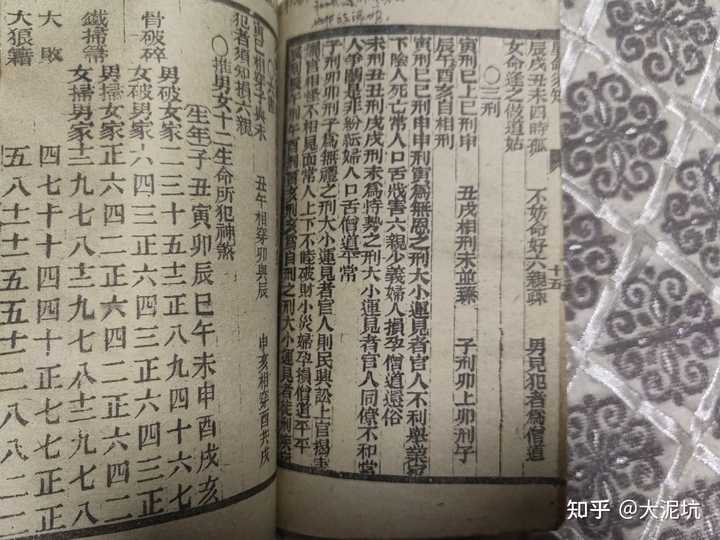 命須知
辰戌丑未四時孤　不妨命好六親疎　男見犯者為僧道
女命逢之做道姑
十五
〇三刑
寅刑巳上巳刑申　丑戌相刑未並臻　子刑卯上卯刑子
辰午酉亥自相刑
寅刑巳巳刑申申刑寅為無恩之刑大小運見者官人不利舉薦
下陰人死亡常人口舌戕害六親少義婦人損孕僧道還俗
未刑丑丑刑戌戌刑未為特勢之刑大小運見者官人同僚不和常
人爭鬭是非紛紜婦人口舌僧道平常
子刑卯卯刑子為無禮之刑大小運見者官人則民與訟上官揭
官相不相見面常人上下不睦破財小災婦孕損僧道平平
午刑午酉刑酉亥刑亥為自刑之刑大小運見者徒刑
寅巳相穿子與未　丑午相穿卯與辰　申亥相穿酉共戌
犯者須知損六親
〇推男女十二生命所犯神煞
生年　子丑寅卯辰巳午未申酉戌亥
骨破碎　男破女家　二三十五十二正八九四十六七
女破男家　六四三正六四三正六四三正
鐵掃箒　男掃女家　正六四二正六四二正六四二
女掃男家　十二九七八十二九七八十二九七八
大敗　四七十十四四十
大狼籍　五八十二十二五五十二二八八二二
知乎 @大泥坑